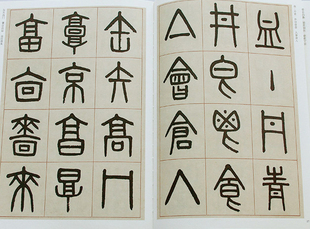 血丶丹青
井皀鬯食
亼會倉入
缶矢高冂
𩫖京亯㫗
畗㐭嗇來